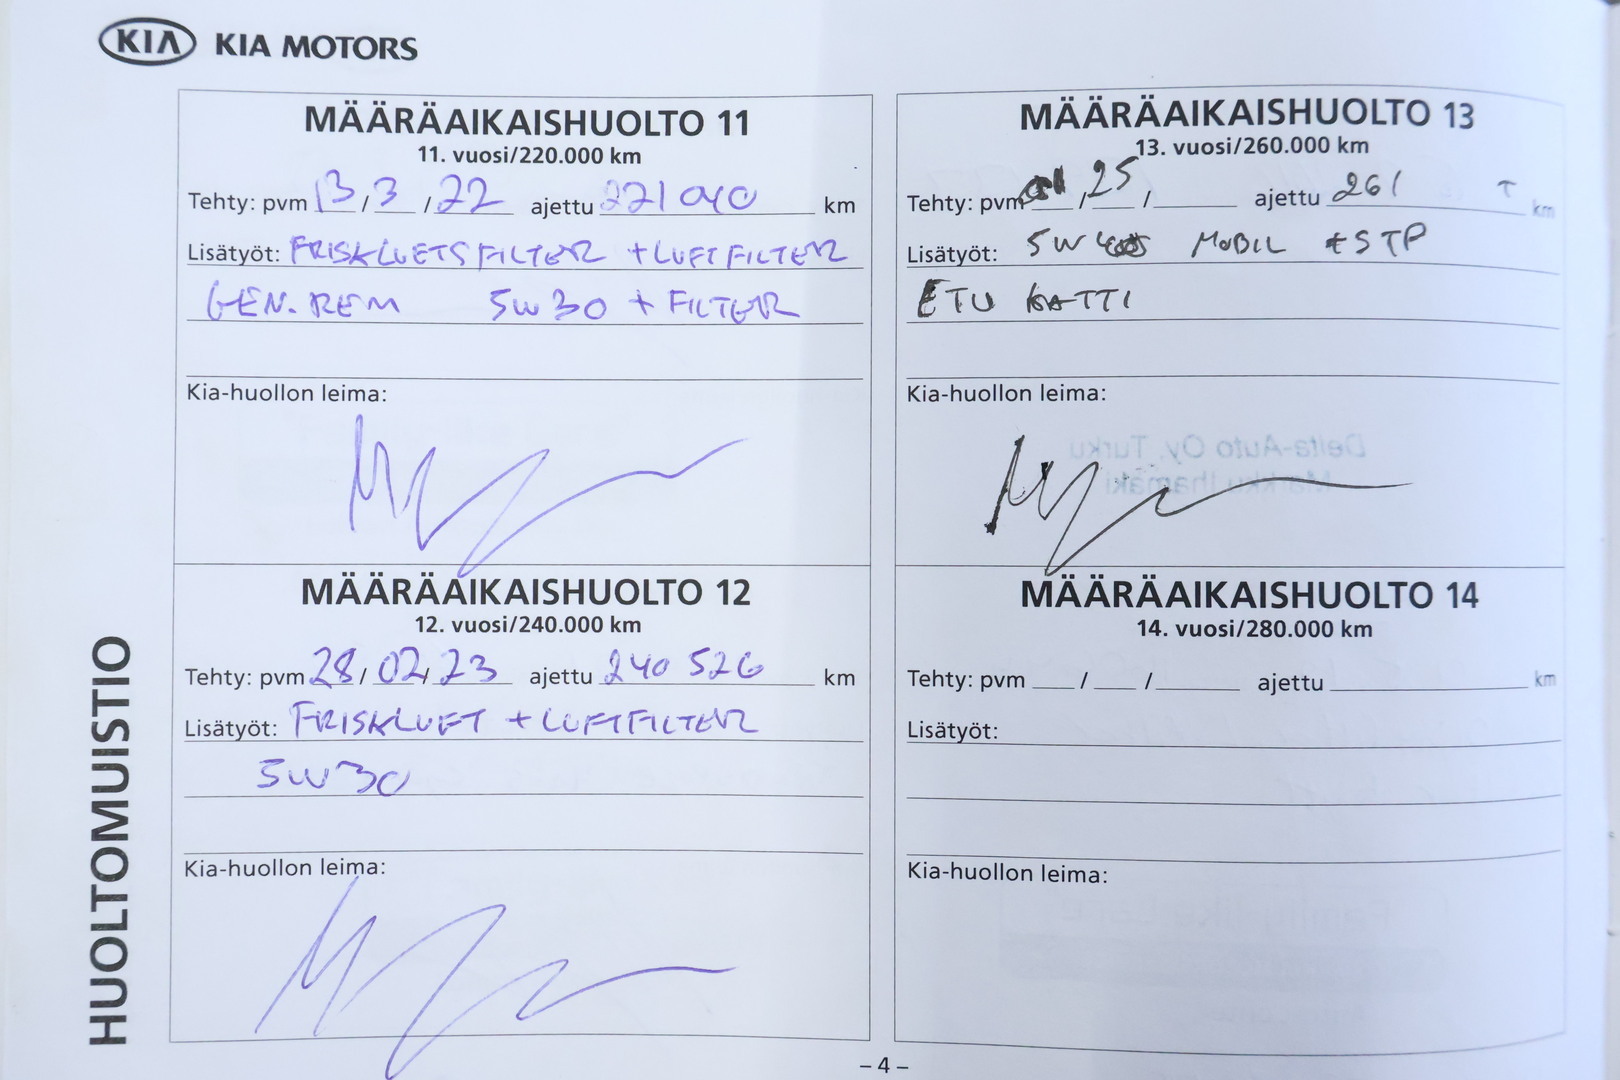 KIA KIA MOTORS
MÄÄRÄAIKAISHUOLTO 11
11. vuosi/220.000 km
Tehty: pvm 13/3/22 ajettu 221 040 km
Lisätyöt: FRISKLUFTSFILTER + LUFTFILTER
GEN. REM 5W30 + FILTER
Kia-huollon leima:
MÄÄRÄAIKAISHUOLTO 12
12. vuosi/240.000 km
Tehty: pvm 28/02/23 ajettu 240 526 km
Lisätyöt: FRISKLUFT + LUFTFILTER
5W30
Kia-huollon leima:
MÄÄRÄAIKAISHUOLTO 13
13. vuosi/260.000 km
Tehty: pvm /25/ ajettu 261 T km
Lisätyöt: 5W MOBIL ESTP
ETU KATTI
Kia-huollon leima:
Delta-Auto Oy, Turku
Markku Ihamäki
MÄÄRÄAIKAISHUOLTO 14
14. vuosi/280.000 km
Tehty: pvm / / ajettu km
Lisätyöt:
Kia-huollon leima:
HUOLTOMUISTIO
– 4 –